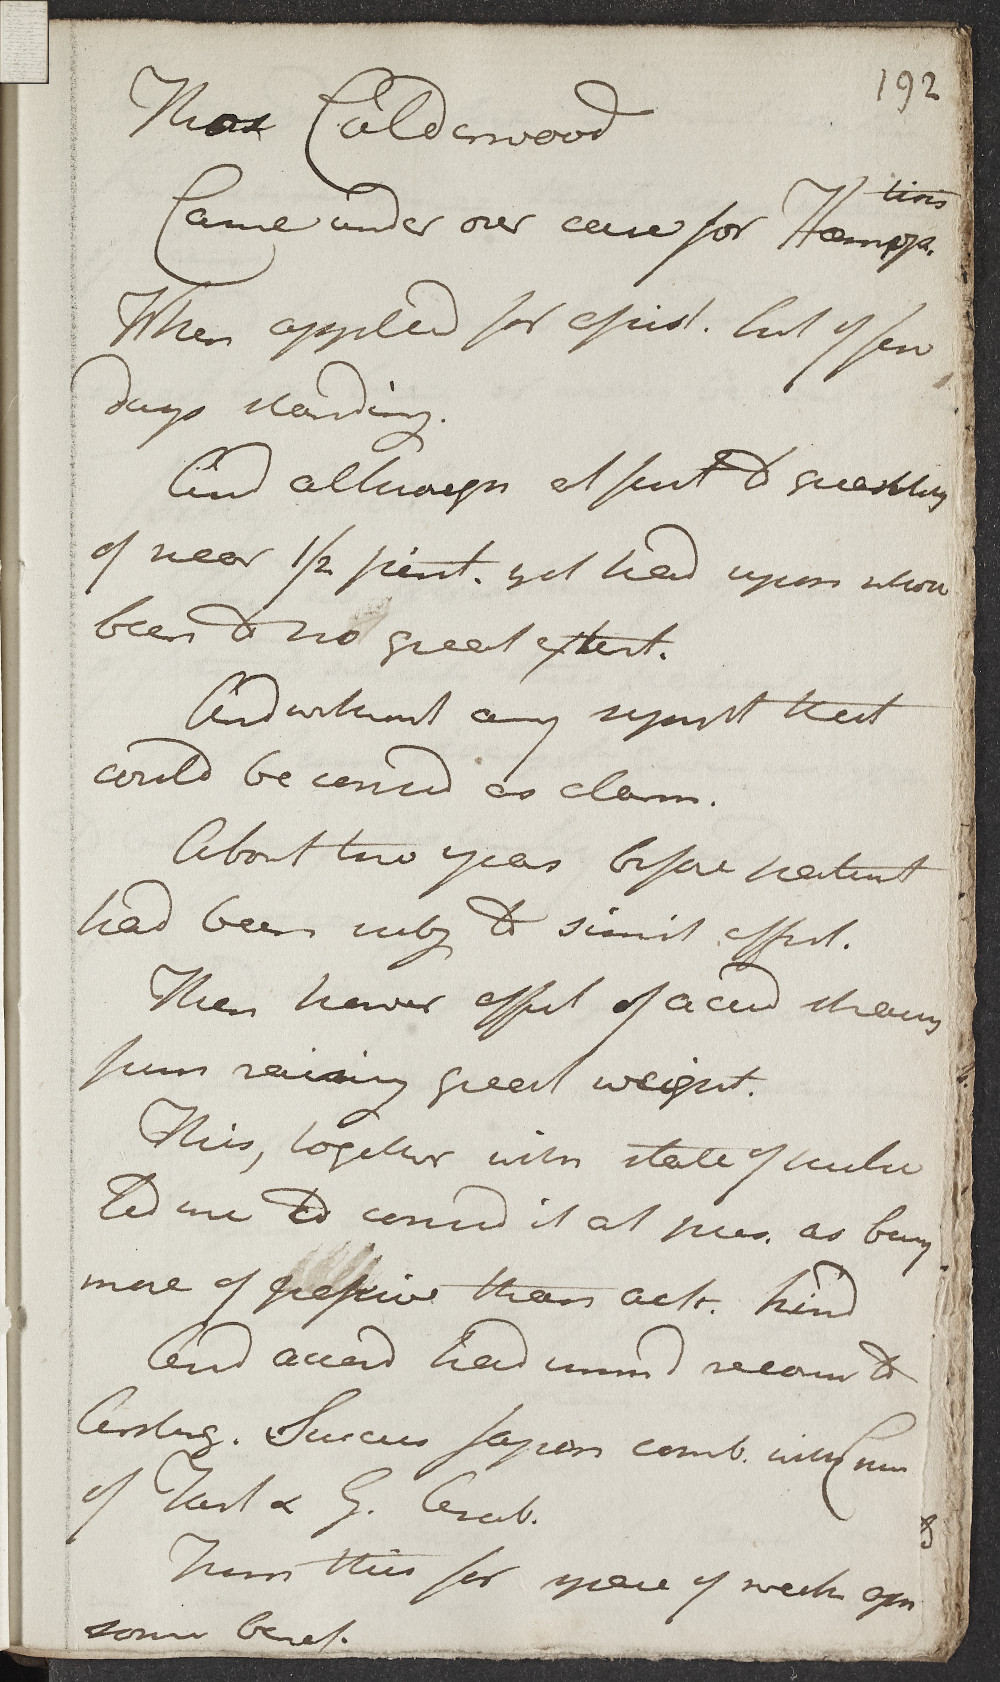 192
Thos Calderwood
Came under our care for Hæmop
tisis
When applied for assist. but of few
days standing.
And although at first to quantity
of near 1/2 pint. yet had upon whole
been to no great extent.
And without any sympt that
could be consid as alarm.
About two years before patient
had been subj to simil affect.
Then however effect of accid strain
from raising great weight.
This, together with state of pulse
led me to consid it at pres. as being
more of passive than act. kind
And accord had immed recourse to
Astring. Succus Japon comb. with Crem
of Tart & G. Arab.
From this for space of week app
some benef.